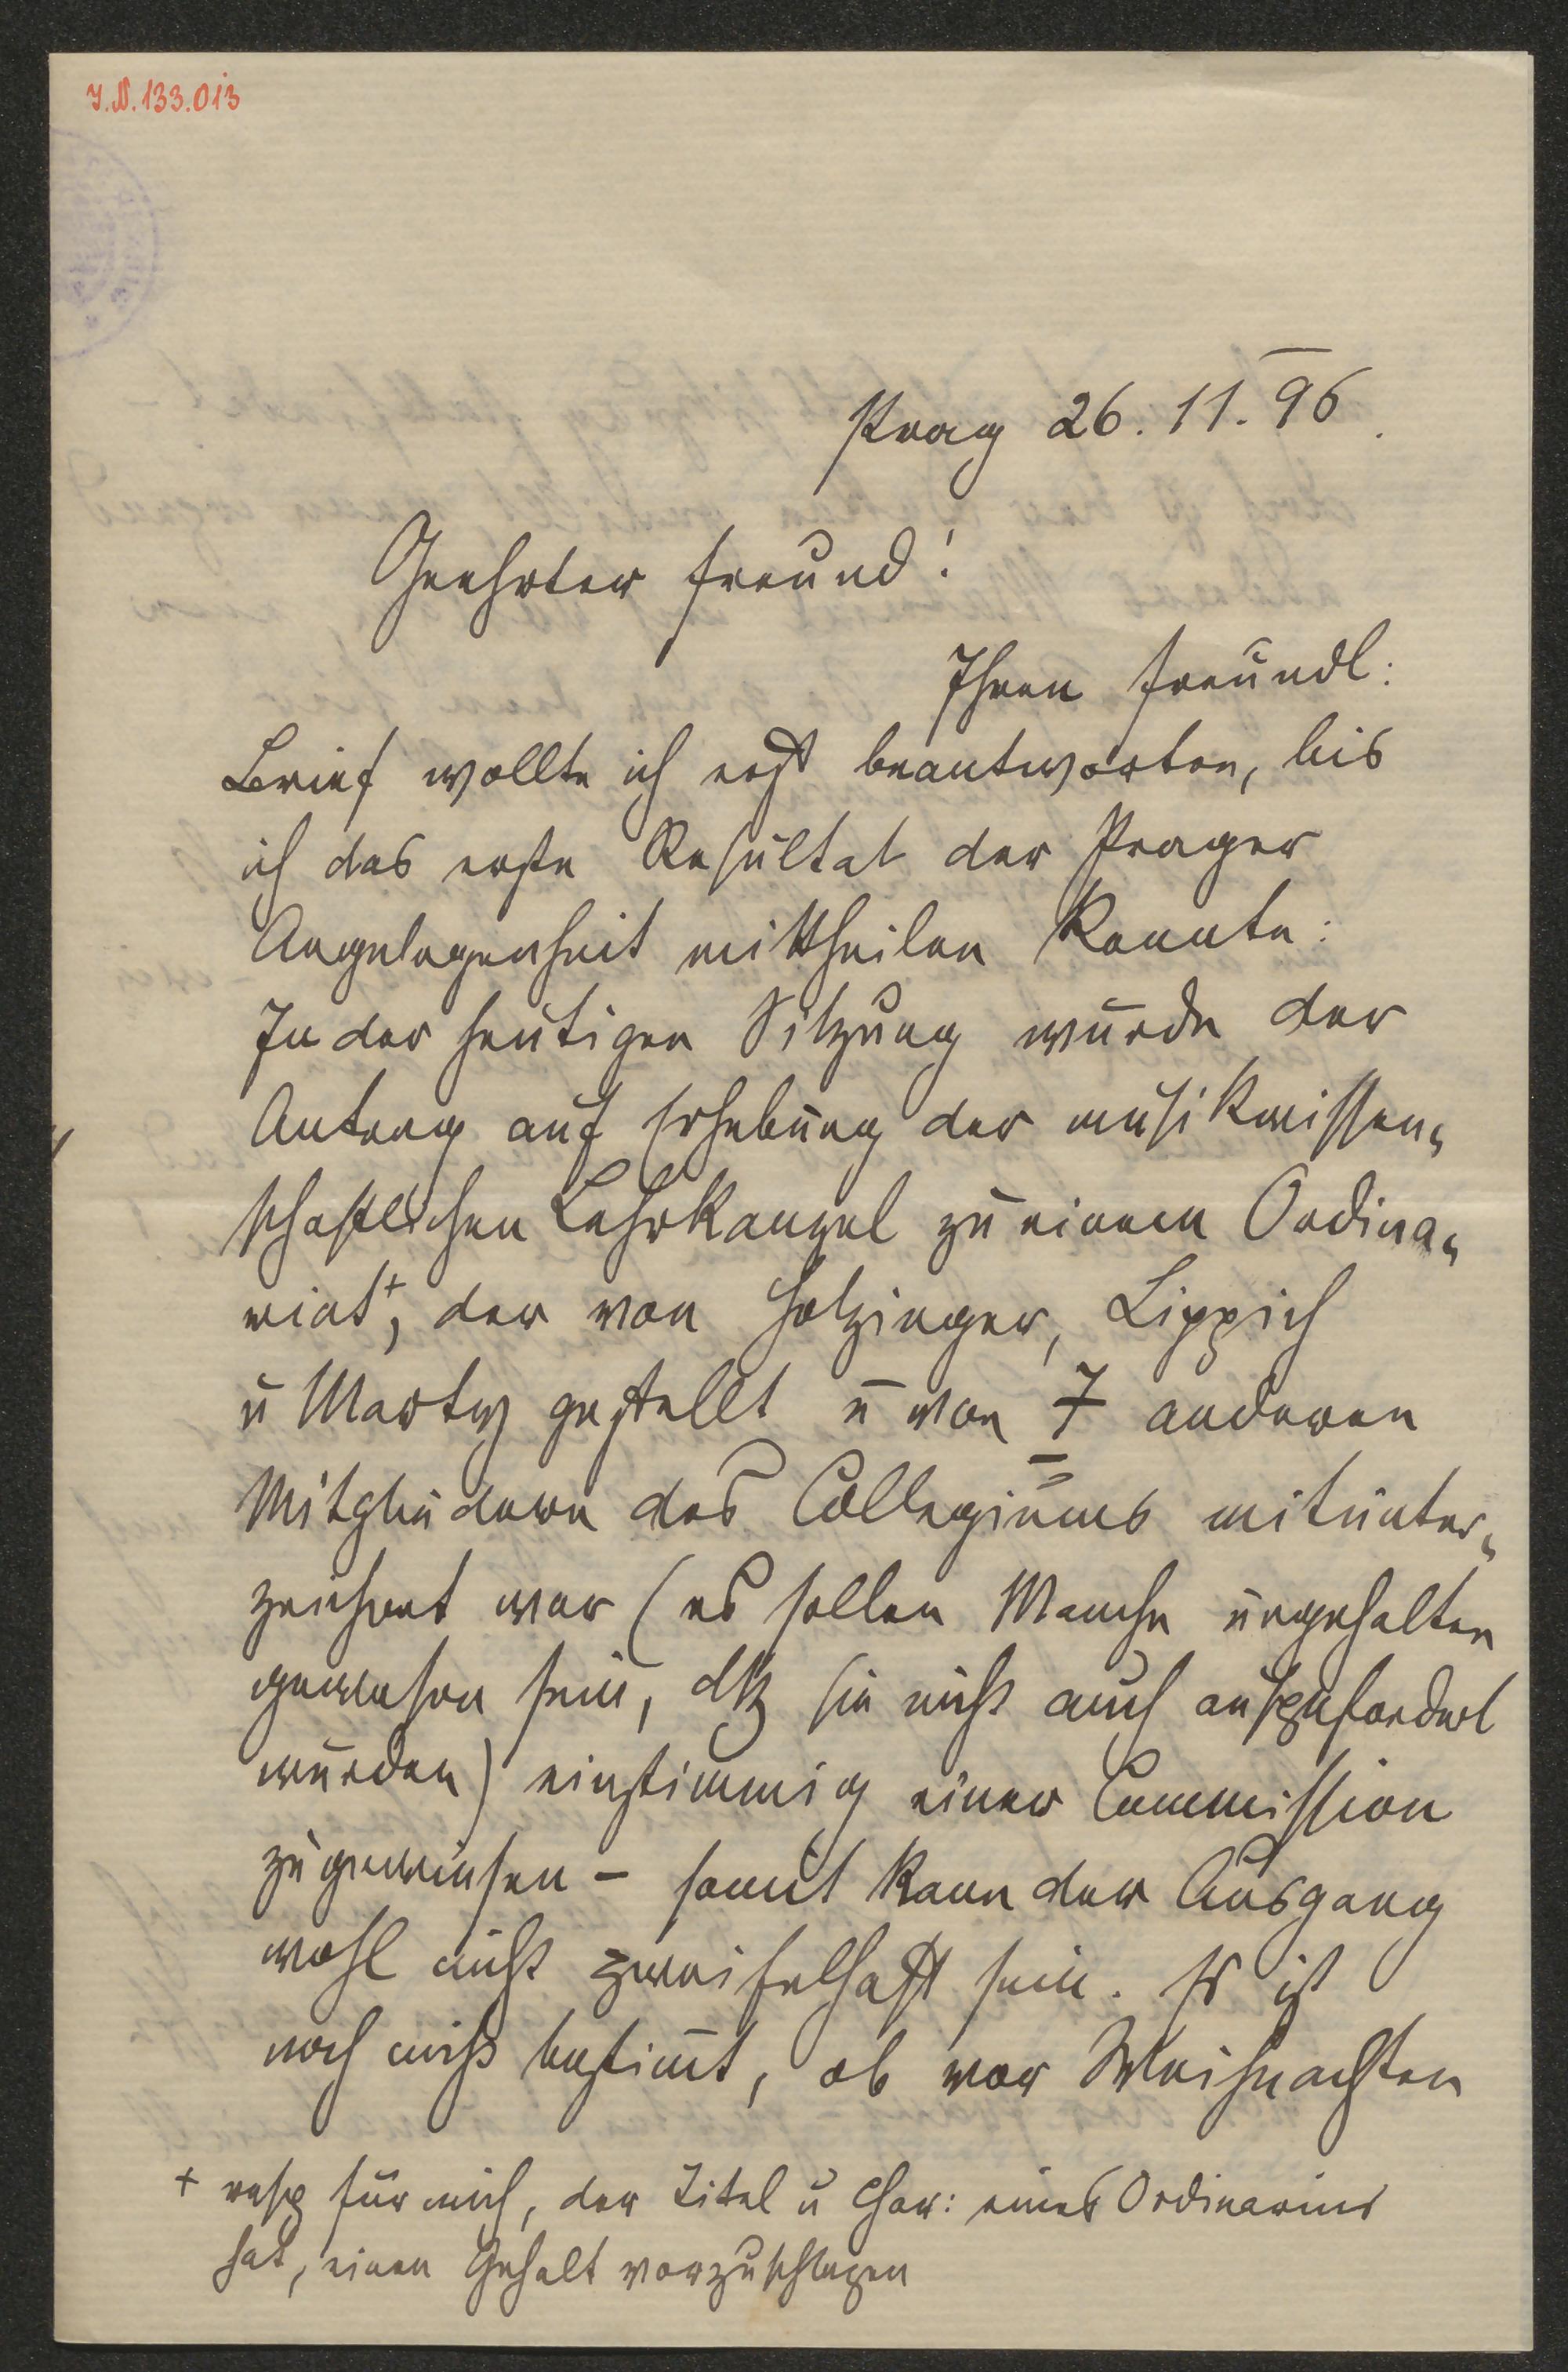 J.N. 133.013
Prag 26. 11. 96.
Geehrter Freund!
Ihren freundl:
Brief wollte ich erst beantworten, bis
ich das erste Resultat der Prager
Angelegenheit mittheilen konnte:
In der heutigen Sitzung wurde der
Antrag auf Erhebung der musikwissen„
schaftlichen Lehrkanzel zu einem Ordina„
riat+, der von Holzinger, Lippich
u Marty gestellt u von 7 anderen
Mitgliedern des Collegiums mitunter„
zeichnet war (es sollen Manche ungehalten
gewesen sein, dß sie nicht auch aufgefordert
wurden) einstimmig einer Commission
zugewiesen – somit kann der Ausgang
wohl nicht zweifelhaft sein. Es ist
noch nicht bestimt, ob vor Weihnachten
+ resp für mich, der Titel u Char: eines Ordinarius
hat, einen Gehalt vorzuschlagen